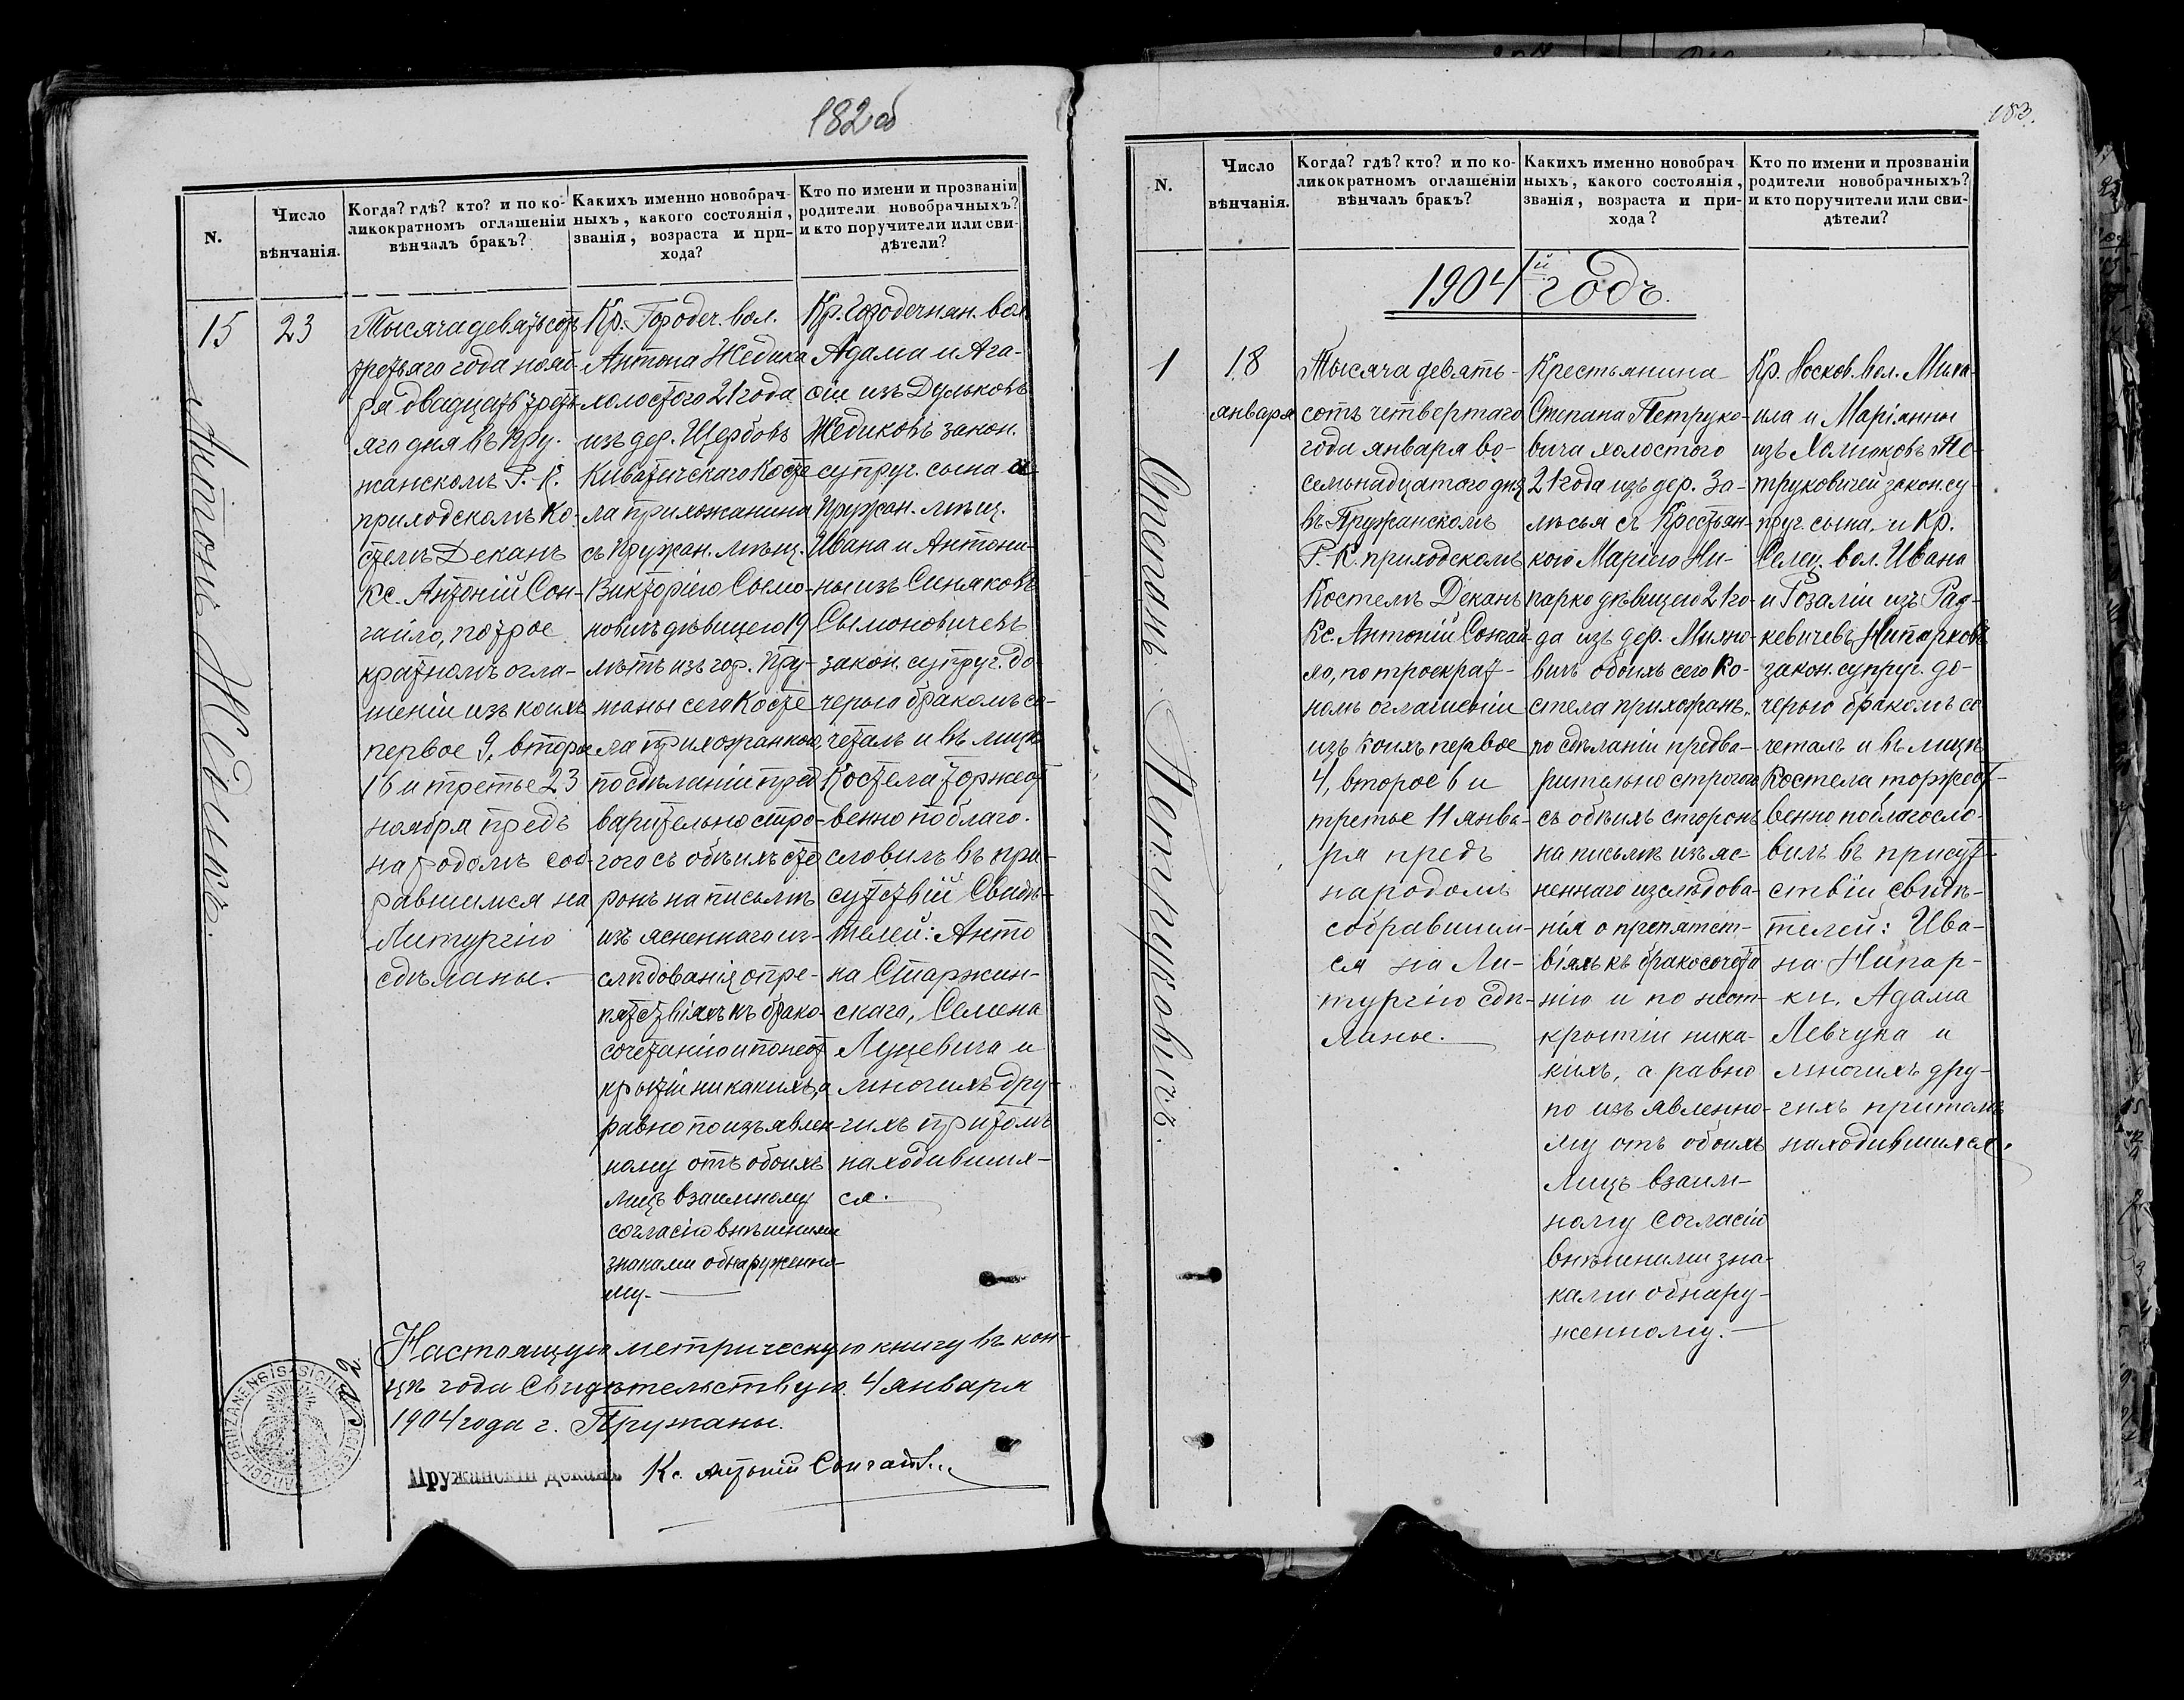 182 об
N.
Число
вѣнчанія.
Когда? гдѣ? кто? и по ко-
ликократномъ оглашеніи
вѣнчалъ бракъ?
Какихъ именно новобрач-
ныхъ, какого состоянія,
званія, возраста и при-
хода?
Кто по имени и прозваніи
родители новобрачныхъ?
и кто поручители или сви-
дѣтели?
15
23
Антонъ Жедикъ.
Тысяча девятьсотъ
третьяго года нояб-
ря двадцать треть-
яго дня въ Пру-
жанскомъ Р.-К.
приходскомъ Ко-
стелѣ Деканъ
Кс. Антоній Сон-
гайло, по трое
кратномъ огла-
шеніи изъ коихъ
первое 9, второе
16 и третье 23
ноября предъ
народомъ соб-
равшимся на
Литургію
сдѣланы.
Кр. Городеч. вол.
Антона Жедика
холостого 21 года
изъ дер. Щербовъ
Киватичскаго Косте
ла прихожанина
съ Пружан. мѣщ.
Викторіею Сымо-
новичъ дѣвицею 19
лѣтъ изъ гор. Пру-
жаны сего Косте
ла прихожанкою,
по сдѣланіи пред
варительно стро-
гого съ обѣихъ сто
ронъ на письмѣ
изъясненнаго из-
слѣдованія о пре-
пятствіяхъ къ брако-
сочетанію и по неот
крытіи никакихъ, а
равно по изъявлен-
ному отъ обоихъ
лицъ взаимному
согласію внѣшними
знаками обнаруженно-
му.
Кр. Городечнян. вол.
Адама и Ага-
фіи изъ Дульковъ
Жедиковъ закон.
супруг. сына и
Пружан. мѣщ.
Ивана и Антони-
ны изъ Синяковъ
Сымоновичевъ
закон. супруг. до-
черью бракомъ со-
четалъ и въ лицѣ
Костела торжест
венно поблаго-
словилъ въ при-
сутствіи Свидѣ-
телей: Анто
на Старжин-
скаго, Семена
Луцевича и
многихъ дру-
гихъ притомъ
находивших-
ся.
Настоящую метрическую книгу въ кон-
цѣ года Свидѣтельствую. 4 января
1904 года г. Пружаны.
№ 2.
Пружанскій Деканъ Кс. Антоній Сонгайло
183.
N.
Число
вѣнчанія.
Когда? гдѣ? кто? и по ко-
ликократномъ оглашеніи
вѣнчалъ бракъ?
Какихъ именно новобрач
ныхъ, какого состоянія,
званія, возраста и при-
хода?
Кто по имени и прозваніи
родители новобрачныхъ?
и кто поручители или сви-
дѣтели?
1904й годъ.
1
18
января
Степанъ Петруковичъ.
Тысяча девять-
сотъ четвертаго
года января во-
семьнадцатого дня
въ Пружанскомъ
Р. К. приходскомъ
Костелѣ Деканъ
Кс. Антоній Сонгай-
ло, по троекрат-
номъ оглашеніи
изъ коихъ первое
4, второе 6 и
третье 11 янва-
ря предъ
народомъ
собравшим-
ся на Ли-
тургію сдѣ-
ланы.
Крестьянина
Степана Петруко-
вича холостого
21 года изъ дер. За-
лѣсья съ Крестьян-
кою Маріею Ни-
парко дѣвицею 21 го-
да изъ дер. Мияно-
вичъ обоихъ сего Ко-
стела прихожанъ,
по сдѣланіи предва-
рительно строгого
съ обѣихъ сторонъ
на письмѣ изъяс-
неннаго изслѣдова-
нія о препятст-
віяхъ къ бракосочета
нію и по неот-
крытіи ника-
кихъ, а равно
по изъявленно-
му отъ обоихъ
Лицъ взаим-
ному согласію
внѣшними зна-
ками обнару-
женному.
Кр. Носков. вол. Миха-
ила и Маріянны
изъ Хомюковъ Пе-
труковичей закон. су-
пруг. сына, и Кр.
Селец. вол. Ивана
и Розаліи изъ Рад-
кевичевъ Нипарковъ
закон. супруг. до-
черью бракомъ со
четалъ и въ лицѣ
Костела торжест-
венно поблагосло-
вилъ въ присут-
ствіи свидѣ-
телей: Ива-
на Нипар-
ки, Адама
Левчука и
многихъ дру-
гихъ притомъ
находившихся.